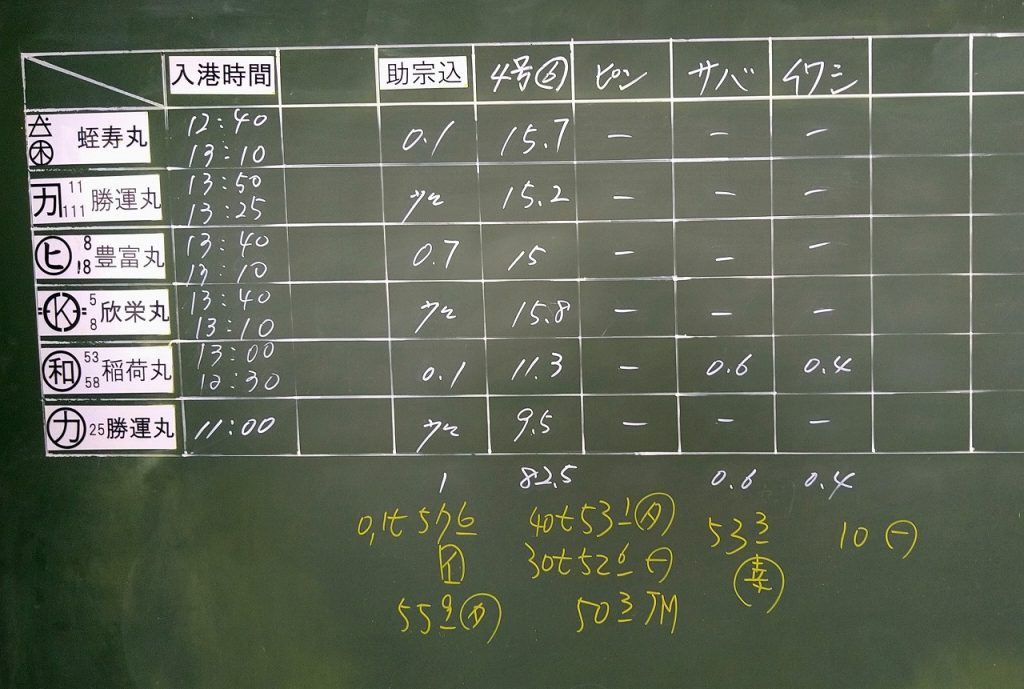 入港時間 助宗込 4号 ピン サバ イワシ
木 蛭寿丸 12:40 13:10 0.1 15.7 - - -
11 111 勝運丸 13:50 13:25 15.2 - - -
ヒ 8 18 豊富丸 13:40 13:10 0.7 15 - - -
K 5 8 欣栄丸 13:40 13:10 15.8 - - -
和 53 58 稲荷丸 13:00 12:30 0.1 11.3 - 0.6 0.4
カ 25 勝運丸 11:00 9.5 - - -
1 82.5 0.6 0.4
40t 531 533 10 一
30t 526 一
559 503 TM